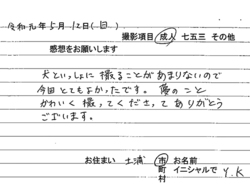 令和元年5月12日(日)
撮影項目 成人 七五三 その他
感想をお願いします
犬といっしょに撮ることがあまりないので
今回とてもよかったです。 のこと
かわいく撮ってくださってありがとう
ございます。
お住まい 土浦 市 町 村 お名前 イニシャルで Y.K